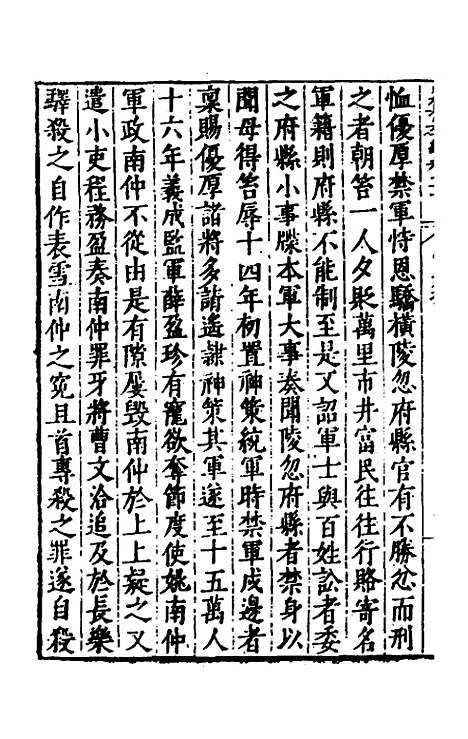 恤優厚禁軍恃恩驕橫陵忽府縣官有不勝忿而刑
之者朝笞一人夕貶萬里市井富民往往行賂寄名
軍籍則府縣不能制至是又詔軍士與百姓訟者委
之府縣小事牒本軍大事奏聞陵忽府縣者禁身以
聞毋得笞辱十四年初置神策統軍時禁軍戍邊者
稟賜優厚諸將多請遙隷神策其軍遂至十五萬人
十六年義成監軍薛盈珍有寵欲奪節度使姚南仲
軍政南仲不從由是有隙屢毀南仲於上上疑之又
遣小吏程務盈奏南仲罪牙將曹文洽追及於長樂
驛殺之自作表雪南仲之寃且首專殺之罪遂自殺